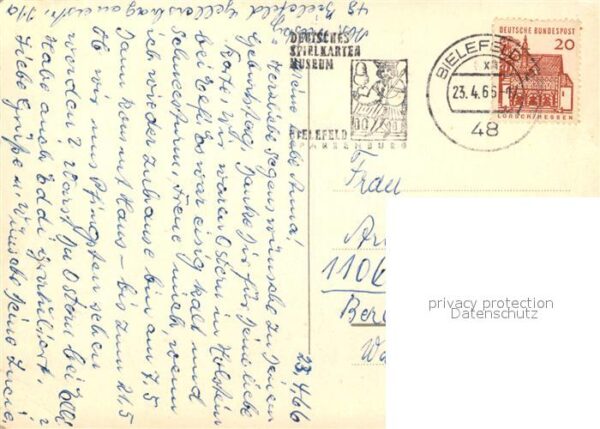 48 Bielefeld
23.4.66
Meine liebe Anna!
Herzliche Segenswünsche zu Deinem
Geburtstag. Danke Dir für Deine liebe
Karte. Wir waren Ostern in Holstein
bei Es war eisig kalt und
Schneesturm. Freue mich, wenn
ich wieder zuhause bin am 7.5
Dann kommt Haus - bis zum 21.5
Ob wir uns Pfingsten sehen
werden? Warst Du Ostern bei Elli?
Habe auch Eddi gratuliert.
Liebe Grüße u. Wünsche Deine Lucie
DEUTSCHES
SPIELKARTEN
MUSEUM
BIELEFELD
SPARRENBURG
BIELEFELD
23.4.66
48
DEUTSCHE BUNDESPOST
20
LORSCH/HESSEN
Frau
An
1106
Ber
Wa
privacy protection
Datenschutz